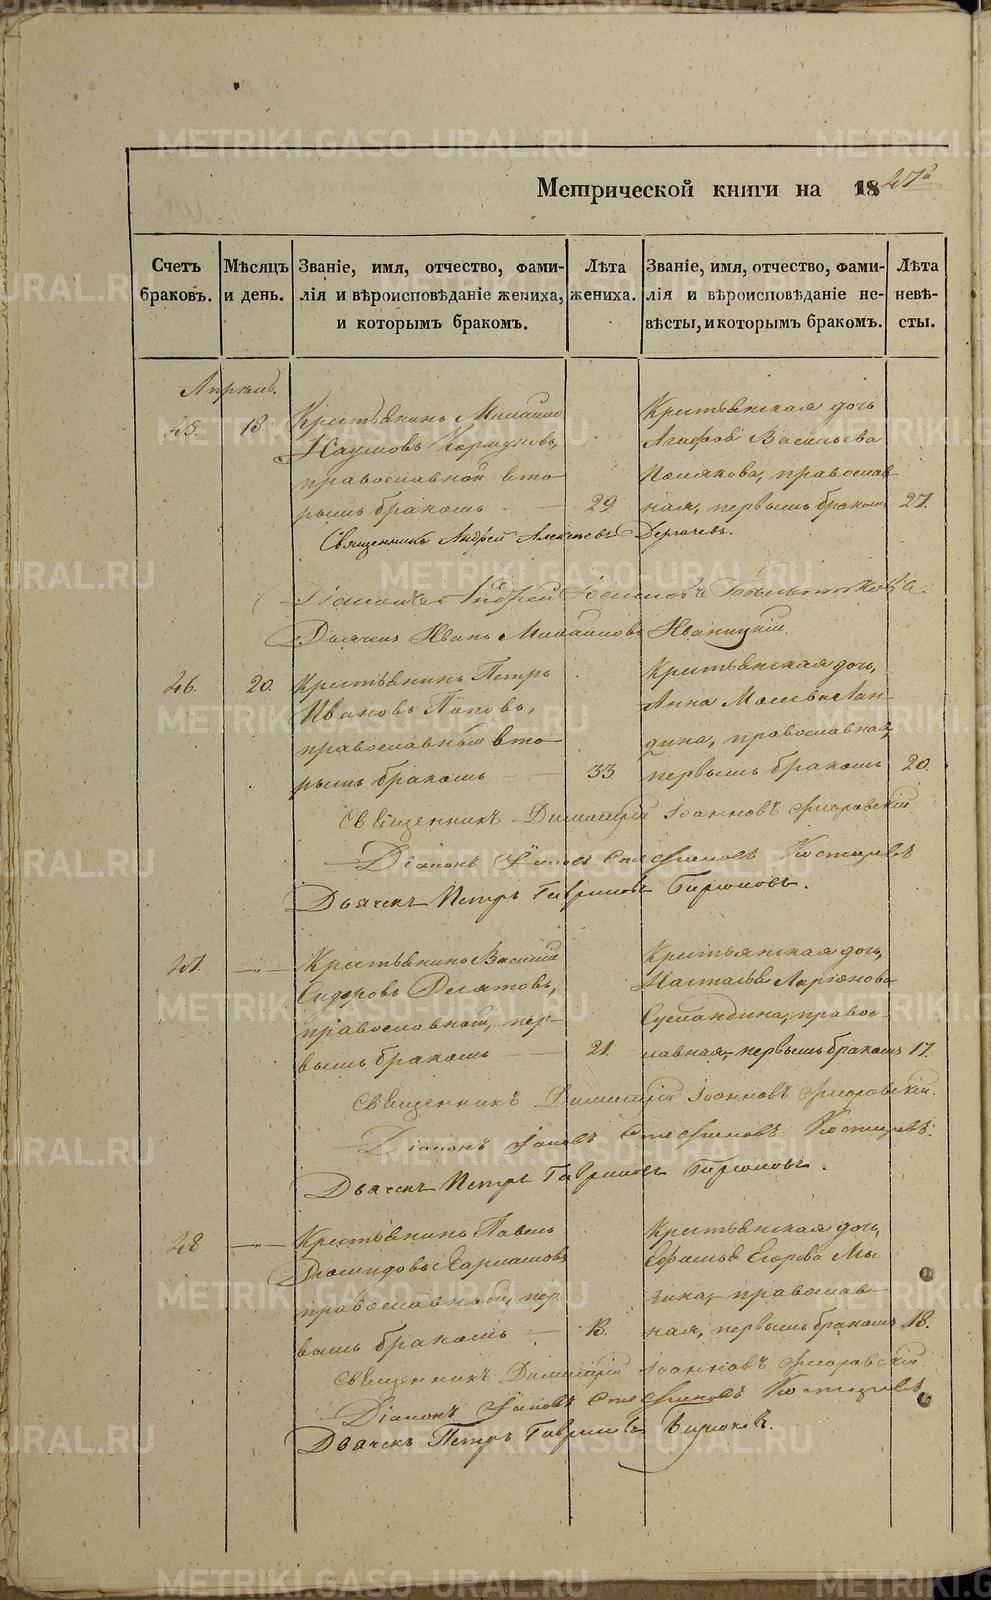 METRIKI.GASO-URAL.RU
Метрической книги на 1847й
Счетъ браковъ.
Мѣсяцъ и день.
Званіе, имя, отчество, фами-
лія и вѣроисповѣданіе жениха,
и которымъ бракомъ.
Лѣта жениха.
Званіе, имя, отчество, фами-
лія и вѣроисповѣданіе не-
вѣсты, и которымъ бракомъ.
Лѣта невѣ-
сты.
Апрѣль.
45. 18.
Крестьянинъ Михаилъ
Наумовъ Коршуновъ,
православной вто
рымъ бракомъ 29
Крестьянская дочь
Агафья Васильева
Полякова, православ-
ная, первымъ бракомъ 27.
Священникъ Андрей Алексѣевъ Дергачевъ.
Діаконъ Андрей
Дьячекъ Иванъ Михаиловъ Иваницкій.
46. 20.
Крестьянинъ Петръ
Ивановъ Поповъ,
православный вто
рымъ бракомъ 33
Крестьянская дочь,
Анна
православная,
первымъ бракомъ 20.
Священникъ Димитрій Іоанновъ Флоровскій
Діаконъ Іаковъ Стефановъ Костаревъ
Дьячекъ Петръ Гавриловъ Бирюковъ.
47.
Крестьянинъ Василій
Сидоровъ Десятовъ,
православной, пер-
вымъ бракомъ 21.
Крестьянская дочь,
Настасья Ларіонова
правос-
лавная, первымъ бракомъ 17.
Священникъ Димитрій Іоанновъ Флоровскій.
Діаконъ Іаковъ Стефановъ Костаревъ.
Дьячекъ Петръ Гавриловъ Бирюковъ.
48
Крестьянинъ Павелъ
православный, пер
вымъ бракомъ
Крестьянская дочь,
Егорова
православ-
ная, первымъ бракомъ 18.
Священникъ Димитрій Іоанновъ Флоровскій
Діаконъ Іаковъ Стефановъ Костаревъ
Дьячекъ Петръ Гавриловъ Бирюковъ.